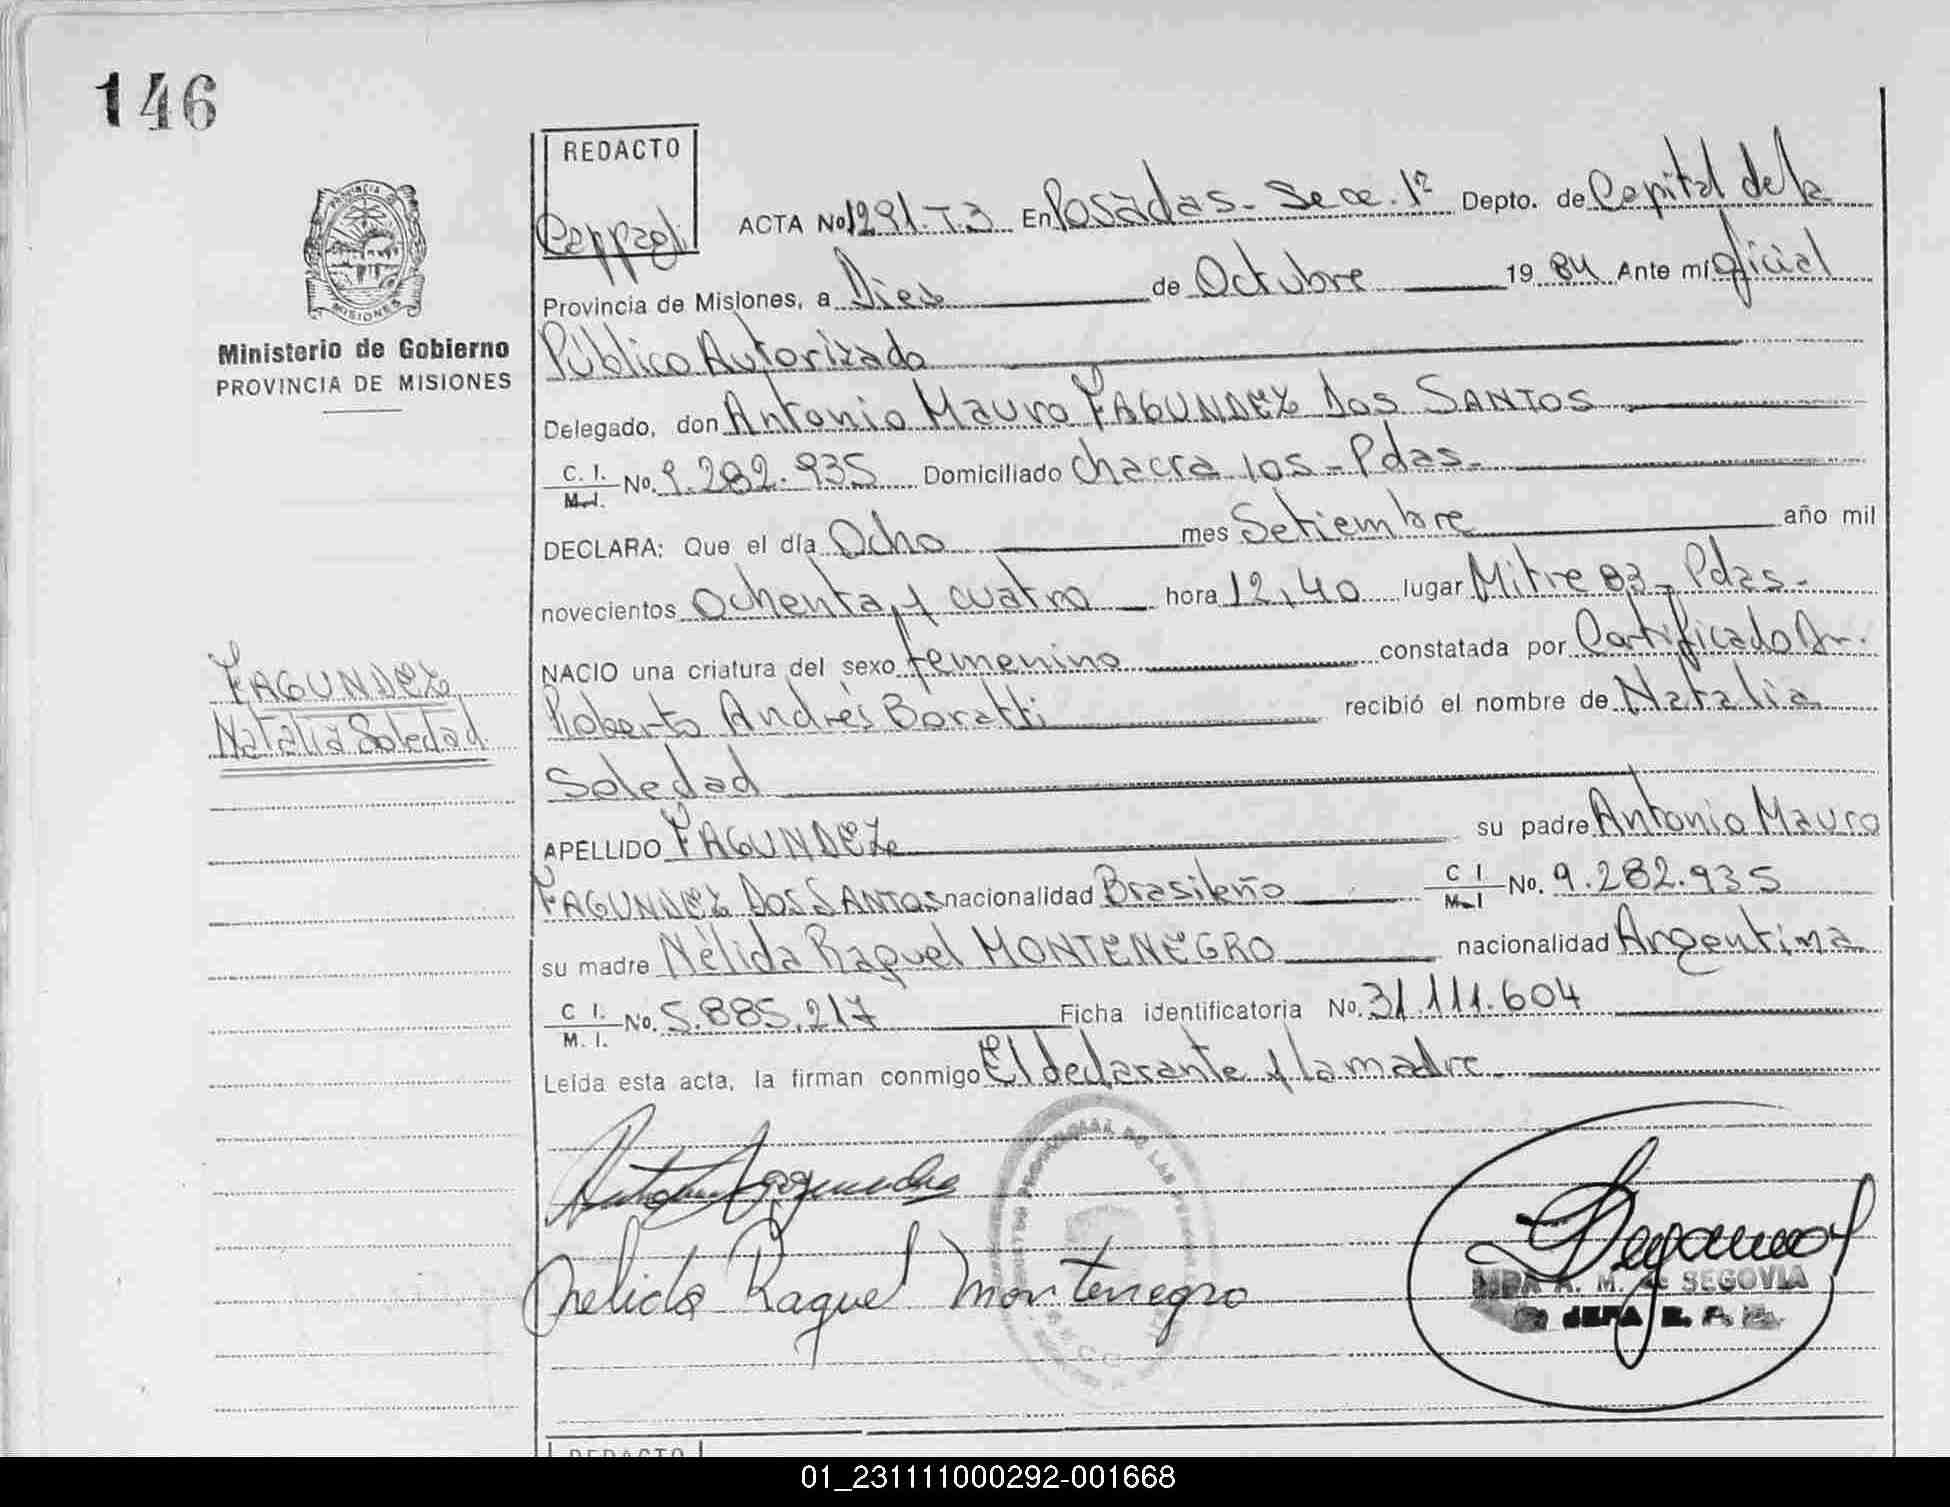 146
REDACTO
PROVINCIA DE
MISIONES
ACTA No 1291-T3 En Posadas - Secc. 1ª Depto. de Capital de la
Provincia de Misiones, a Diez de Octubre 1984 Ante mí Oficial
Ministerio de Gobierno
PROVINCIA DE MISIONES
Público Autorizado
Delegado, don Antonio Mauro FAGUNDEZ DOS SANTOS
C. I. M. I. No. 9.282.935 Domiciliado Chacra 105 - Pdas.
DECLARA: Que el día Ocho mes Setiembre año mil
novecientos Ochenta y cuatro hora 12,40 lugar Mitre 83 - Pdas.
NACIO una criatura del sexo femenino constatada por Certificado Dr.
FAGUNDEZ
Natalia Soledad
Roberto Andrés Boratti recibió el nombre de Natalia
Soledad
APELLIDO FAGUNDEZ su padre Antonio Mauro
FAGUNDEZ DOS SANTOS nacionalidad Brasileño C I M I No. 9.282.935
su madre Nélida Raquel MONTENEGRO nacionalidad Argentina
C I. M. I. No. 5.885.217 Ficha identificatoria No. 31.111.604
Leída esta acta, la firman conmigo El declarante y la madre
Nelida Raquel Montenegro
A. M. de SEGOVIA
JEFA
REDACTO
01_231111000292-001668